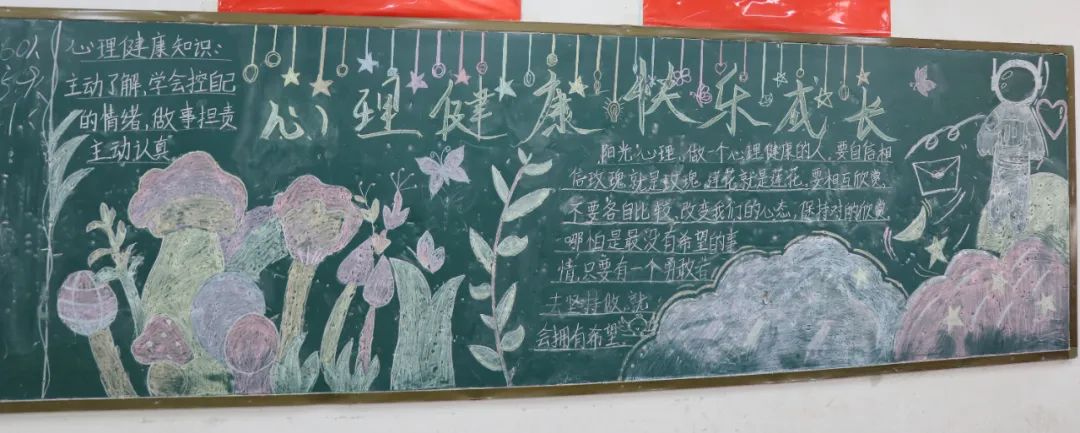 心理健康知识：
主动了解，学会控自己
的情绪，做事担责
主动认真
心理健康 快乐成长
阳光心理，做一个心理健康的人，要自信相
信玫瑰就是玫瑰，莲花就是莲花，要相互欣赏，
不要各自比较，改变我们的心态，保持对的欣赏
哪怕是最没有希望的事
情，只要有一个勇敢者
去坚持做，就
会拥有希望。